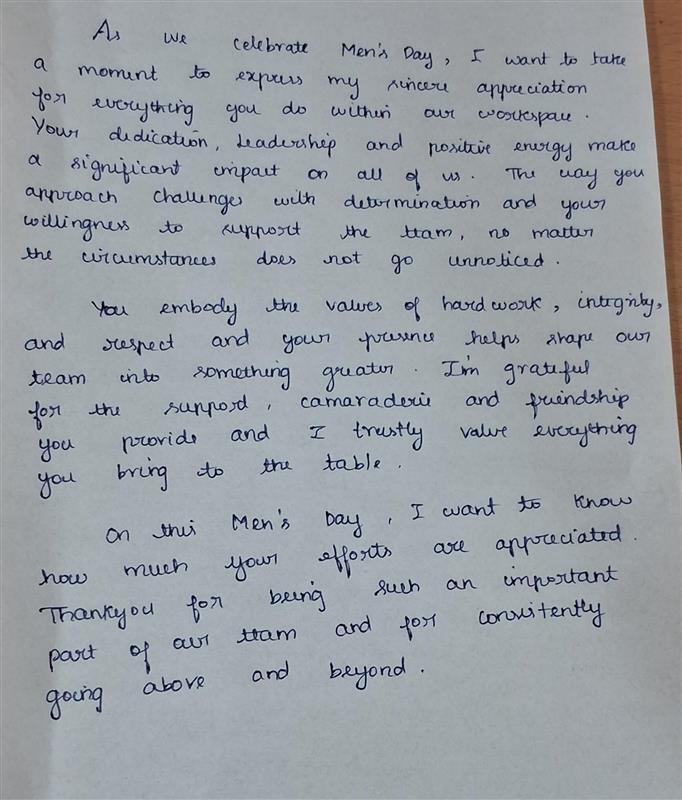 As we celebrate Men's Day, I want to take
a moment to express my sincere appreciation
for everything you do within our workspace.
Your dedication, leadership and positive energy make
a significant impact on all of us. The way you
approach challenges with determination and your
willingness to support the team, no matter
the circumstances does not go unnoticed.
You embody the values of hard work, integrity,
and respect and your presence helps shape our
team into something greater. I'm grateful
for the support, camaraderie and friendship
you provide and I trustly value everything
you bring to the table.
On this Men's Day, I want to know
how much your efforts are appreciated.
Thankyou for being such an important
part of our team and for consitently
going above and beyond.